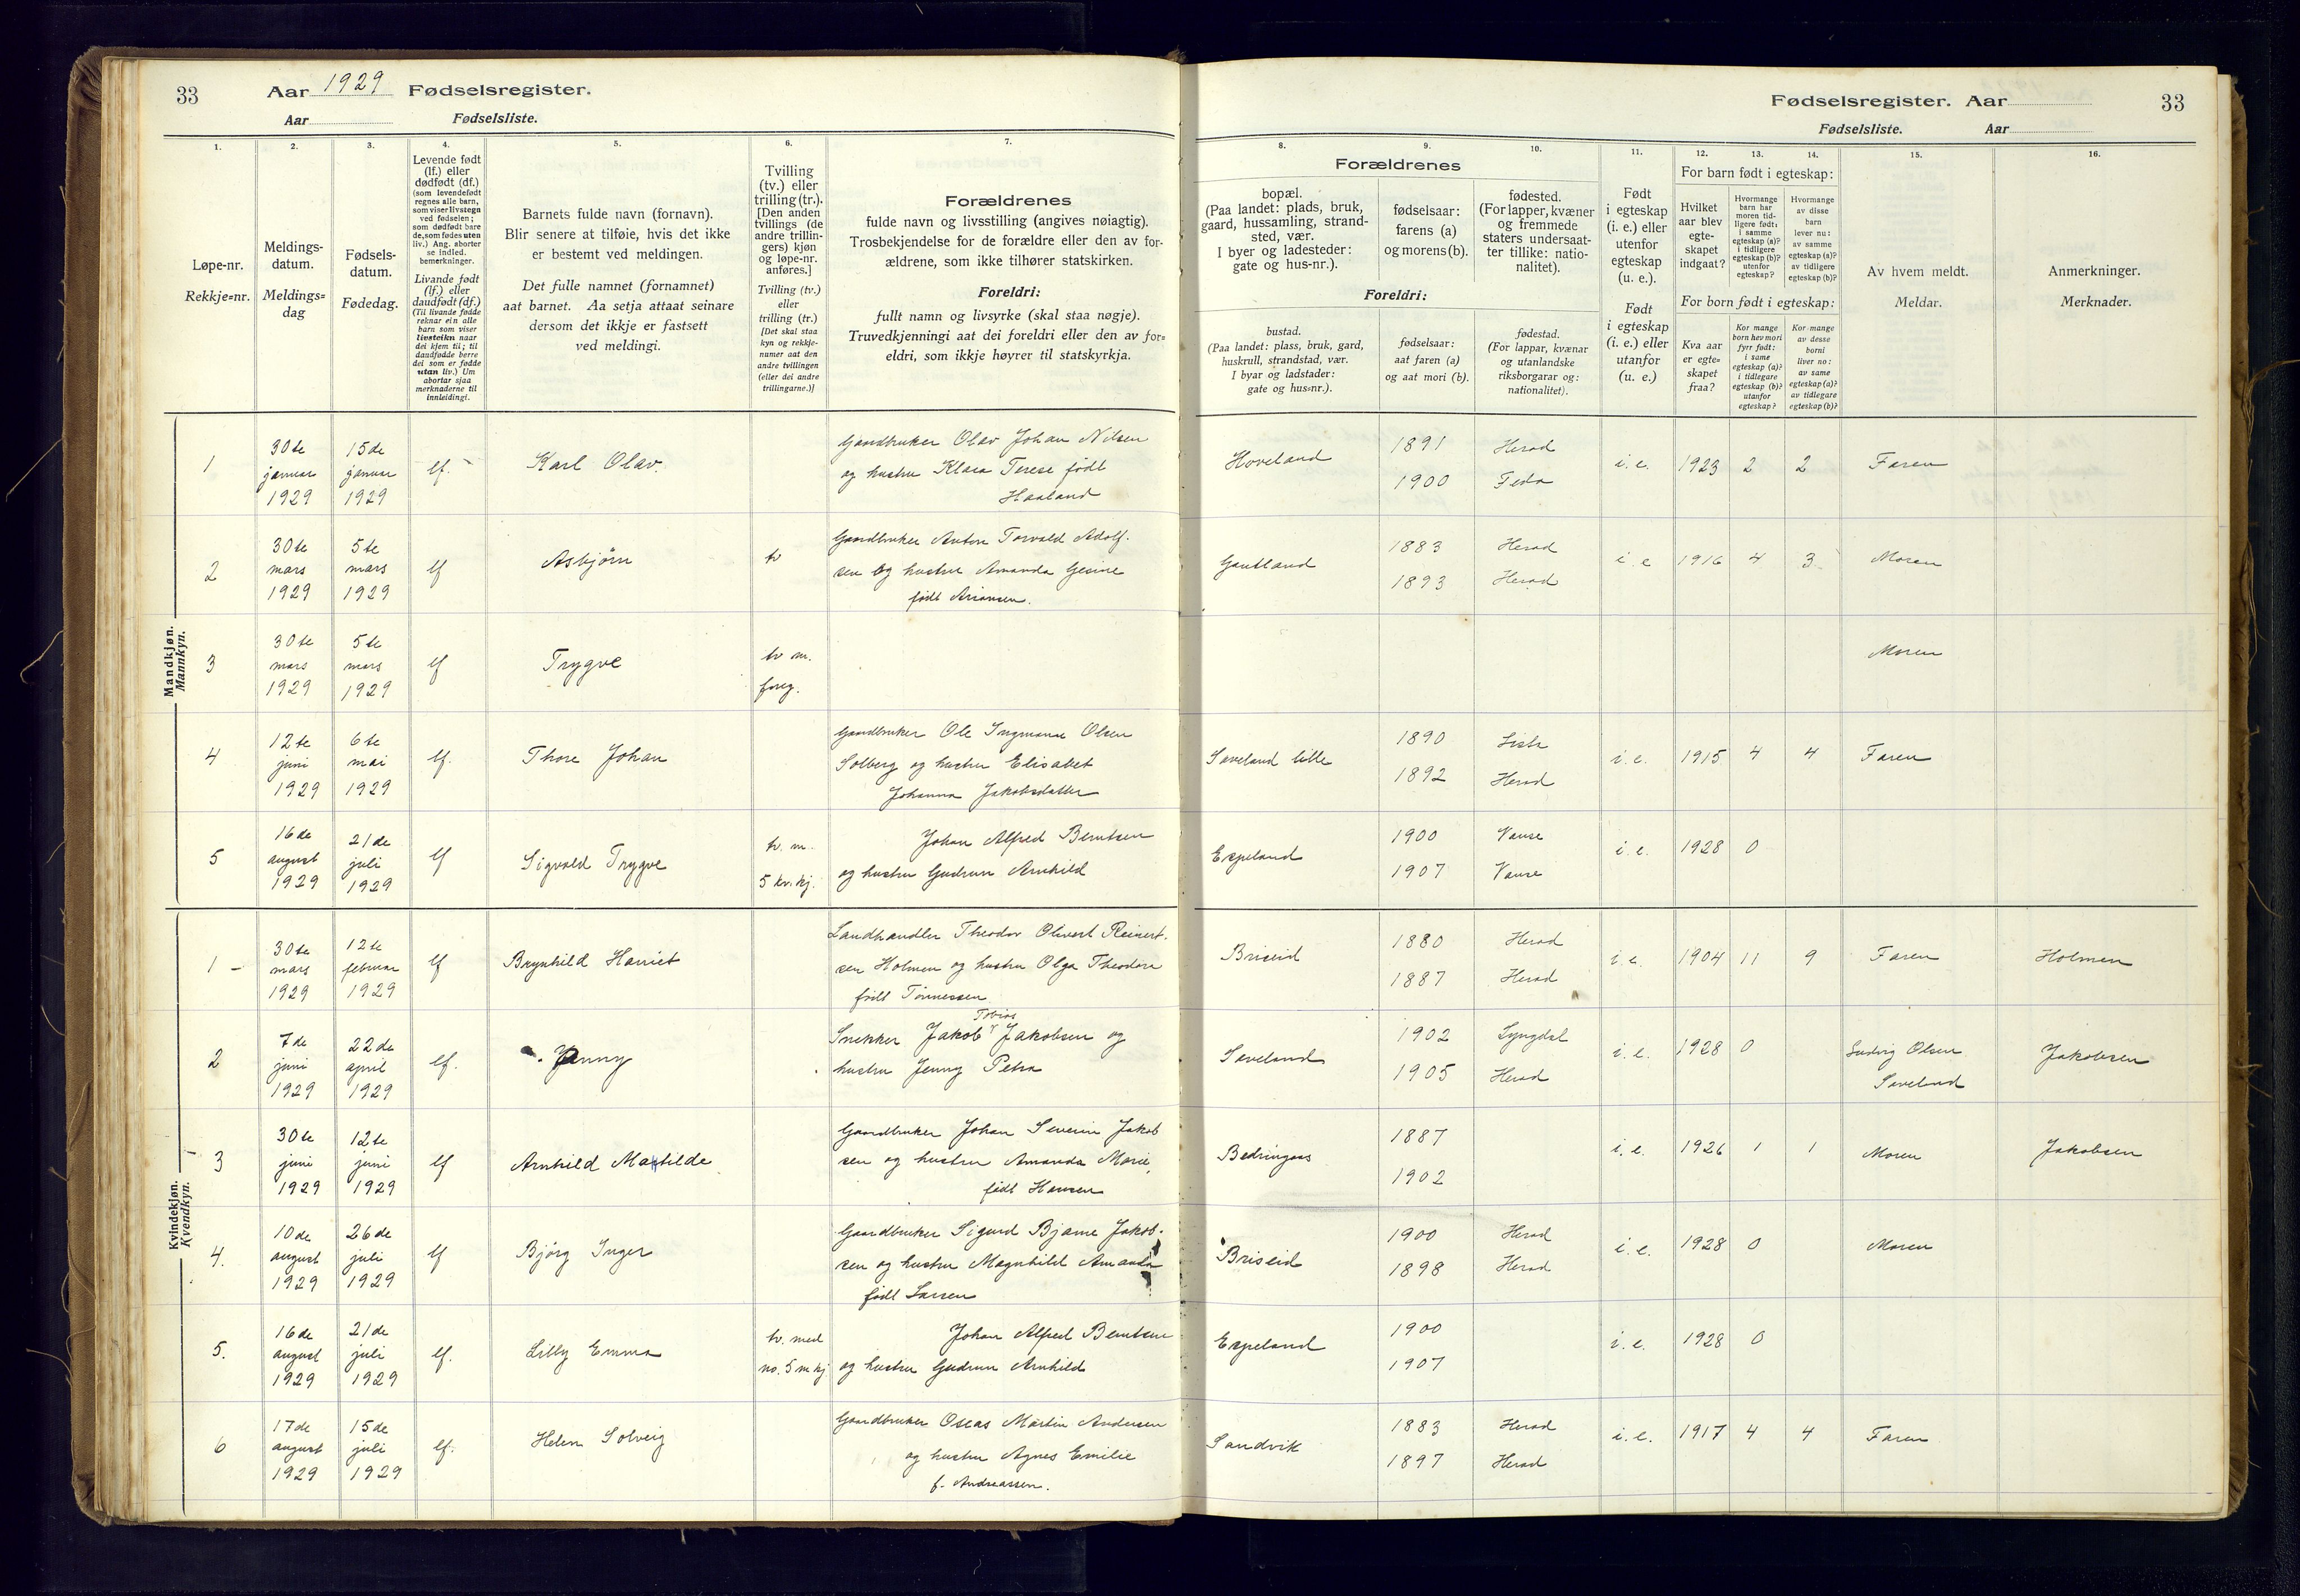 33
Aar 1929 Fødselsregister.
Aar Fødselsliste.
1.
Løpe-nr.
Rekkje=nr.
2.
Meldings-
datum.
Meldings=
dag
3.
Fødsels-
datum.
Fødedag.
4.
Levende født
(lf.) eller
dødfødt (df.)
(som levendefødt
regnes alle barn,
som viser livstegn
ved fødselen;
som dødfødt bare
de, som fødes uten
liv.) Ang. aborter
se indled.
bemerkninger.
Livande født
(lf.) eller
daudfødt (df.)
(Til livande fødde
reknar ein alle
barn som viser
livsteikn naar
dei kjem til; til
daudfødde berre
dei som er fødde
utan liv.) Um
abortar sjaa
merknaderne til
innleidingi.
5.
Barnets fulde navn (fornavn).
Blir senere at tilføie, hvis det ikke
er bestemt ved meldingen.
Det fulle namnet (fornamnet)
aat barnet. Aa setja attaat seinare
dersom det ikkje er fastsett
ved meldingi.
6.
Tvilling
(tv.) eller
trilling (tr.).
[Den anden
tvillings (de
andre trillin-
gers) kjøn
og løpe-nr.
anføres.]
Tvilling (tv.)
eller
trilling (tr.)
[Det skal staa
kyn og rekkje-
numer aat den
andre tvillingen
(eller dei andre
trillingarne.)]
7.
Forældrenes
fulde navn og livsstilling (angives nøiagtig).
Trosbekjendelse for de forældre eller den av for-
ældrene, som ikke tilhører statskirken.
Foreldri:
fullt namn og livsyrke (skal staa nøgje).
Truvedkjenningi aat dei foreldri eller den av for=
eldri, som ikkje høyrer til statskyrkja.
Fødselsregister. Aar 33
Fødselsliste. Aar
Forældrenes
8.
bopæl.
(Paa landet: plads, bruk,
gaard, hussamling, strand-
sted, vær.
I byer og ladesteder:
gate og hus-nr.).
Foreldri:
bustad.
(Paa landet: plass, bruk, gard,
huskrull, strandstad, vær.
I byar og ladstader:
gate og hus=nr.).
9.
fødselsaar:
farens (a)
og morens (b).
fødselsaar:
aat faren (a)
og aat mori (b).
10.
fødested.
(For lapper, kvæner
og fremmede
staters undersaat-
ter tillike: natio-
nalitet).
fødestad.
(For lappar, kvænar
og utanlandske
riksborgarar og:
nationalitet).
11.
Født
i egteskap
(i. e.) eller
utenfor
egteskap
(u. e.).
Født
i egteskap
(i. e.) eller
utanfor
(u. e.)
12. 13. 14.
For barn født i egteskap:
Hvilket
aar blev
egte-
skapet
indgaat?
Hvormange
barn har
moren tid-
ligere født:
i samme
egteskap (a)?
i tidligere
egteskap (b)?
utenfor
egteskap?
Hvormange
av disse
barn
lever nu:
av samme
egteskap (a)?
av tidligere
egteskap (b)?
For born født i egteskap:
Kva aar
er egte=
skapet
fraa?
Kor mange
born hev mori
fyrr født:
i same
egteskap (a)?
i tidlegare
egteskap (b)?
utanfor
egteskap?
Kor mange
av desse
borni
liver no:
av same
egteskap (a)?
av tidlegare
egteskap (b)?
15.
Av hvem meldt.
Meldar.
16.
Anmerkninger.
Merknader.
Mandkjøn.
Mannkyn.
1 30te januar 1929 15de januar 1929 lf. Karl Olav. Gaardbruker Olav Johan Nilsen
og hustru Klara Terese født
Haaland Hoveland 1891 1900 Herad Feda i.e. 1923 2 2 Faren
2 30te mars 1929 5te mars 1929 lf Asbjörn tv Gaardbruker Anton Torvald Adolf-
sen og hustru Amanda Gesine
født Arionsen. Gautland 1883 1893 Herad Herad i e 1916 4 3 Moren
3 30te mars 1929 5te mars 1929 lf Trygve tv m.
foreg. Moren
4 12te juni 1929 6te mai 1929 lf. Thore Johan Gaardbruker Ole Ingmann Olsen
Solberg og hustru Elisabet
Johanna Jakobsdatter Søveland lille 1890 1892 Lista Herad i.e. 1915 4 4 Faren
5 16de august 1929 21de juli 1929 lf Sigvald Trygve tv. m.
5 kv. kj. Johan Alfred Berntsen
og hustru Gudrun Arnhild Espeland 1900 1907 Vanse Vanse i.e. 1928 0
Kvindekjøn.
Kvendkyn.
1 - 30te mars 1929 12te februar 1929 lf Brynhild Harriet Landhandler Theodor Olivert Reinert-
sen Holmen og hustru Olga Theodore
født Tønnessen Briseid 1880 1887 Herad Herad i.e. 1904 11 9 Faren Holmen
2 7de juni 1929 22de april 1929 lf. Jenny Snekker Jakob Tobias Jakobsen og
hustru Jenny Petra Søveland 1902 1905 Lyngdal Herad i.e. 1928 0 Ludvig Olsen
Søveland Jakobsen
3 30te juni 1929 12te juni 1929 lf Arnhild Mathilde Gaardbruker Johan Severin Jakob
sen og hustru Amanda Marie,
født Hansen Bedringaas 1887 1902 i.e. 1926 1 1 Moren Jakobsen
4. 10de august 1929 26de juli 1929 lf Bjørg Inger Gaardbruker Sigurd Bjarne Jakob-
sen og hustru Magnhild Amanda
født Larsen Briseid 1900 1898 Herad Herad i.e. 1928 0 Moren
5. 16de august 1929 21de juli 1929 lf. Lilly Emma tv. med
no. 5 m kj Johan Alfred Berntsen
og hustru Gudrun Arnhild Espeland 1900 1907 i.e. 1928 0
6 17de august 1929 15de juli 1929 lf. Helen Solveig Gaardbruker Oseas Martin Andersen
og hustru Agnes Emilie
f. Andreassen. Sandvik 1883 1897 Herad Herad i.e. 1917 4 4 Faren